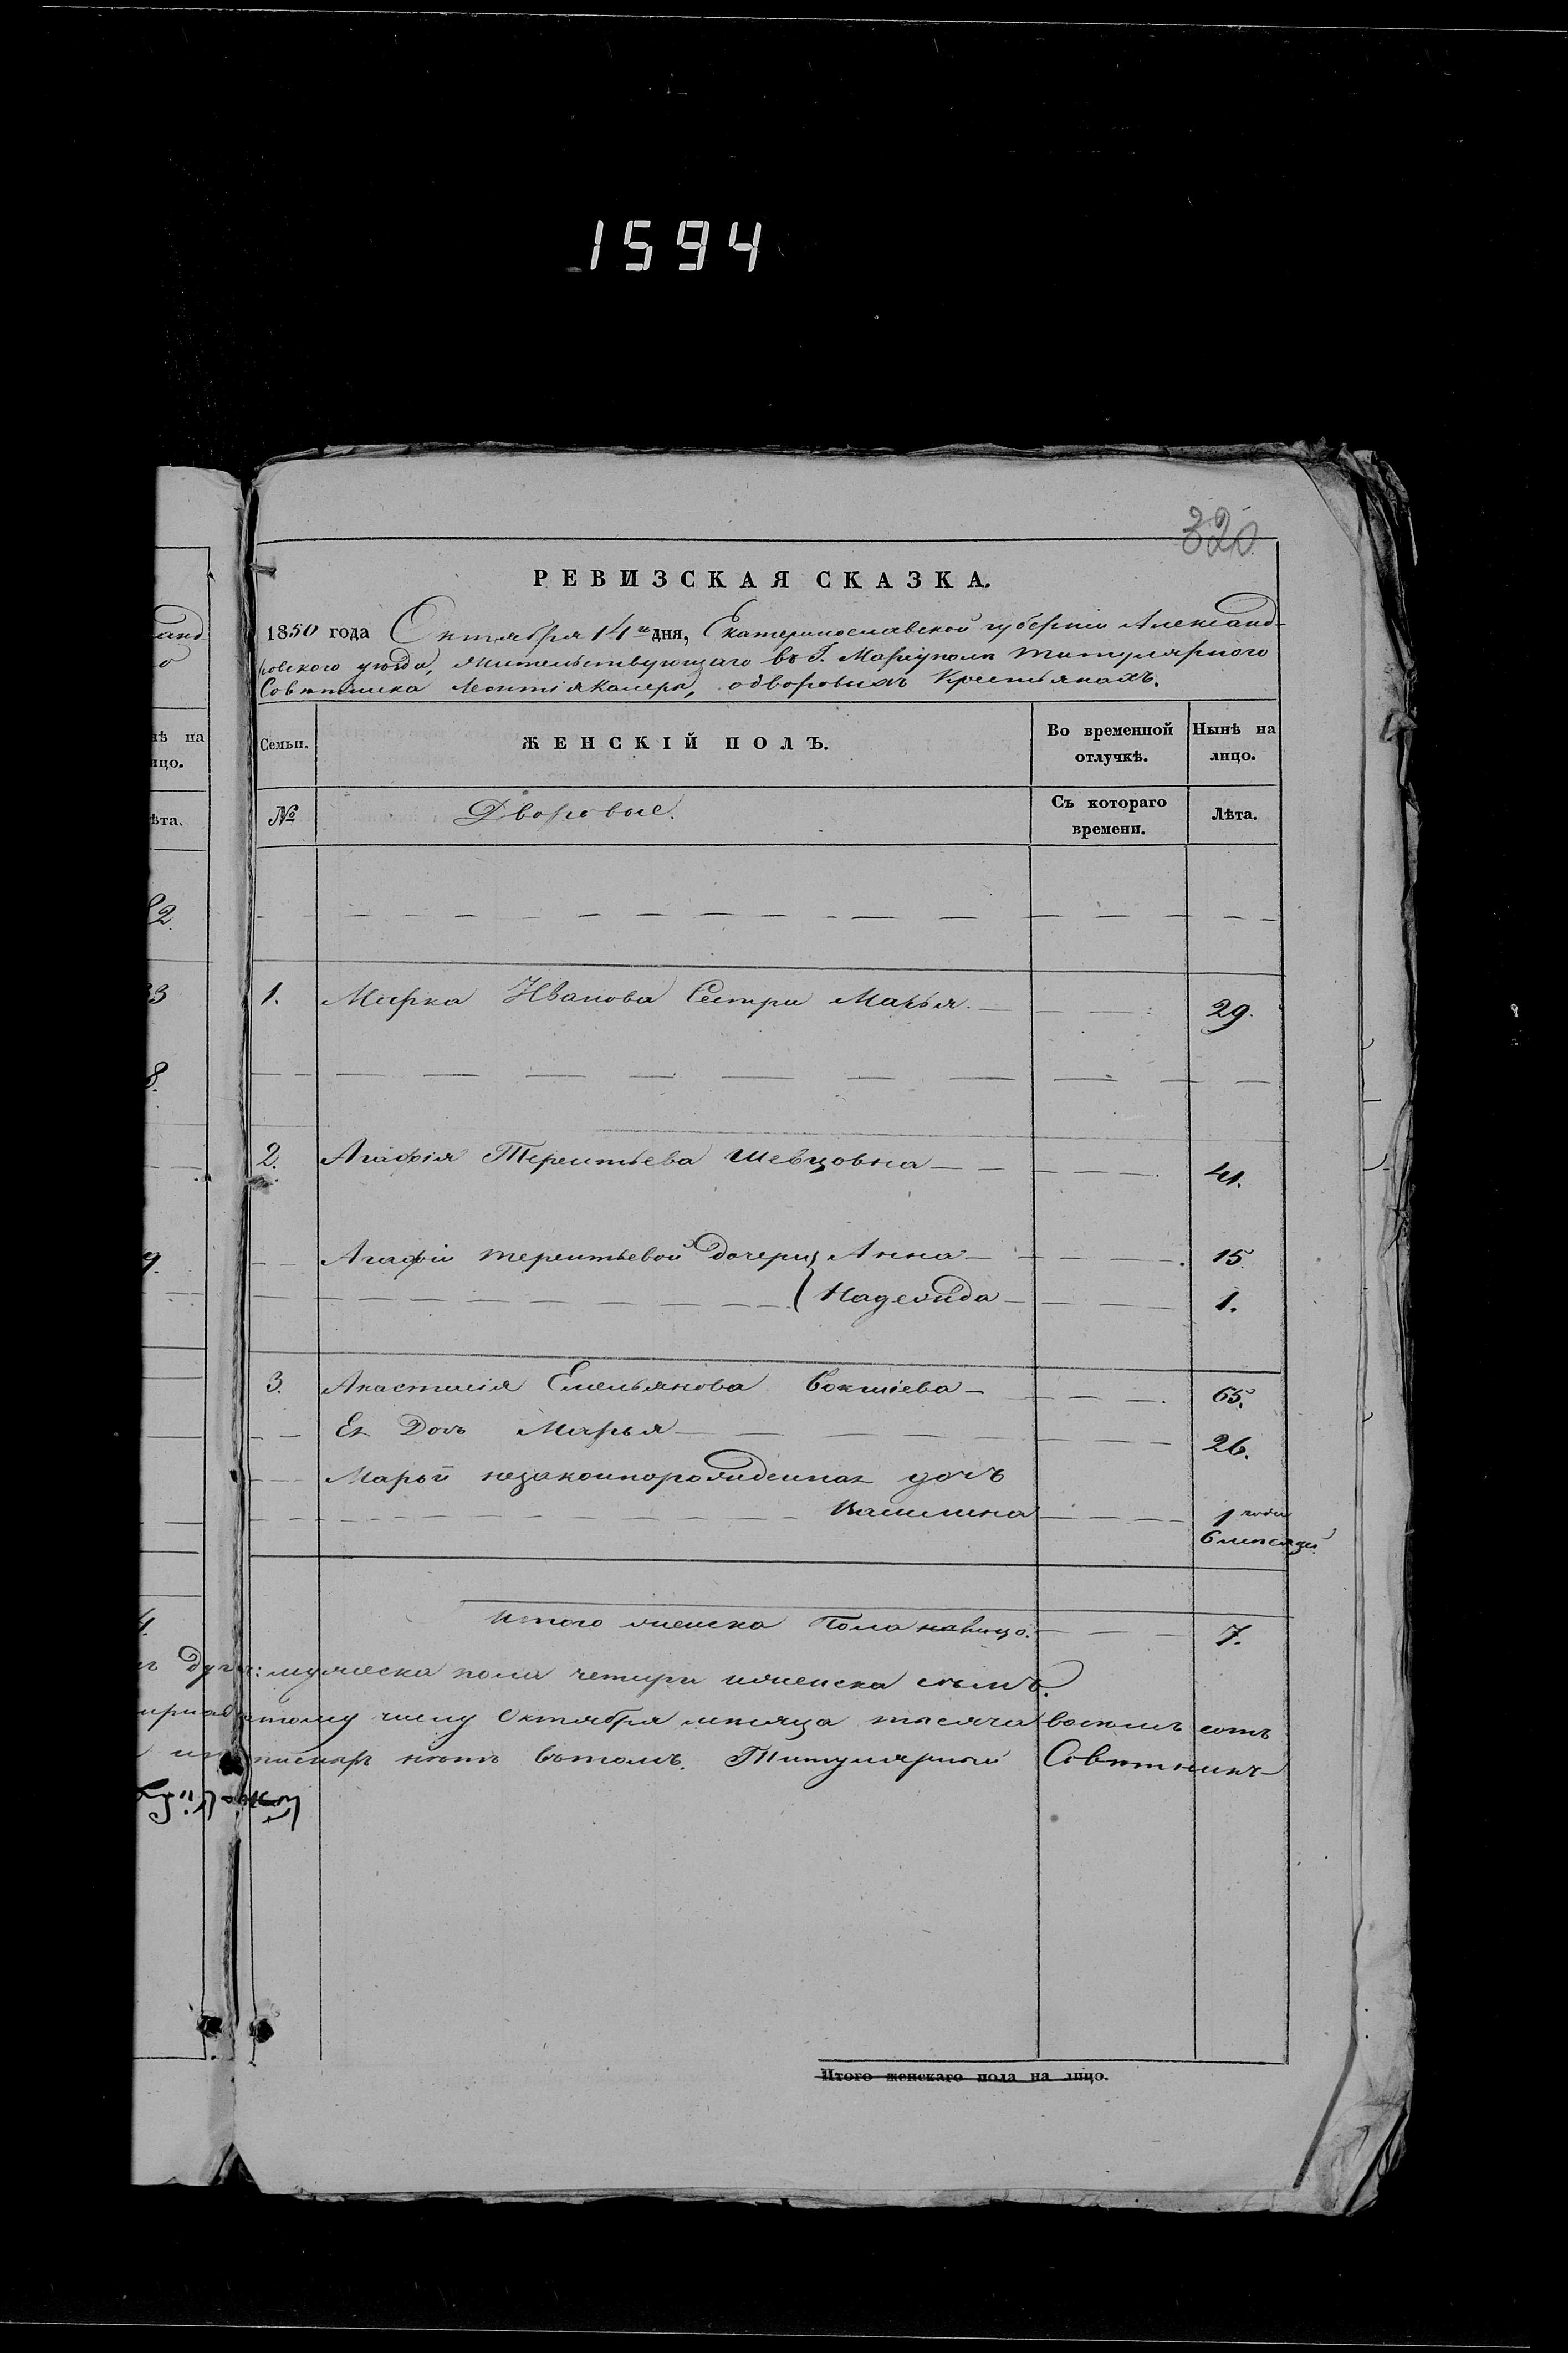 1594
320
РЕВИЗСКАЯ СКАЗКА.
1850 года Октября 14го дня, Екатеринославской губернии Александ-
ровского уѣзда, жительствующаго въ Г. Мариуполѣ титулярного
Совѣтника Леонтія Калери, о дворовыхъ Крестьянахъ.
Семьи. ЖЕНСКІЙ ПОЛЪ. Во временной отлучкѣ. Нынѣ на лицо.
№ Дворовые. Съ котораго времени. Лѣта.
1. Марка Иванова Сестра Марья 29.
2. Агафія Терентьева Шевцовна 41.
Агафіи Терентьевой дочери, Анна 15.
Надежда 1.
3. Анастасія Емельянова 65.
Ея Дочь Марья 26.
Марьи незаконнорожденная дочь
1 года
6 месяцей
Итого женска Пола налицо. 7.
душъ: мужеска пола четыри и женска семъ.
тому числу Октября месяца тысяча восемь сотъ
нѣтъ Титулярный Совѣтникъ
Итого женскаго пола на лицо.
нѣ на
ицо.
ѣта.